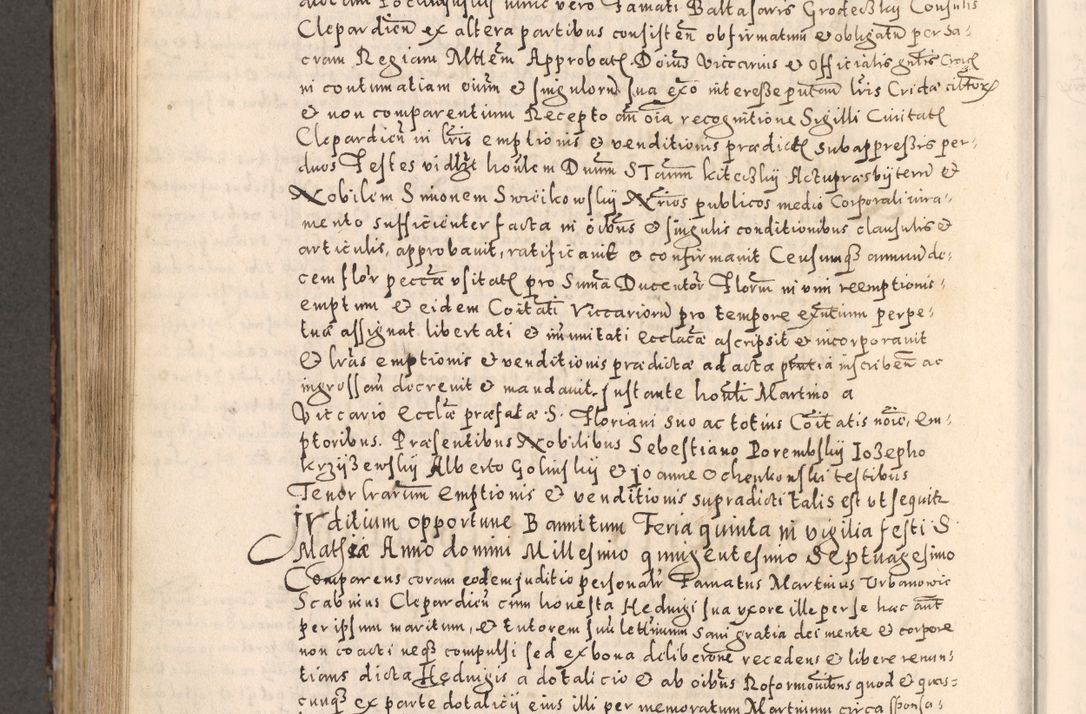 nunc vero Famati Baltasaris Grodeczky Consulis
Clepardien̄ ex altera partibus consisten̄ obfirmatum & obligatū per Sa-
cram Regiam Mttēm Approbat̄ Dn̄us Viccarius & Officialis gn̄lis
in contumatiam oīum & singulorū sua ex͞o interesse putan̄ lr̄is Cridae
& non comparentium Recepto cū oīa recognitione Sigilli Civitat̄
Clepardien̄ in lr̄is emptionis & venditionis praedict̄ Subappressis per
duos Testes vidlt̄ hoūlem Dnum STam̄ kiteczky Actu praesbyterū &
Nobilem Simonem Swieikowsky Nr̄ios publicos medio Corporali iura-
mento sufficienter facta in oībus & singulis conditionibus clausulis &
articulis, approbavit, ratificavit & confirmavit Censumq3 annuū de-
cem flor peccūae usitat̄ pro Suma Ducentor Florum in vim reemptionis
emptum & eidem Coītati Viccariorū pro tempore exn̄tium perpe-
tua assignat libertati & imunitati eccl̄ae ascripsit & incorporavit
& lrās emptionis & venditionis praedictae ad acta inscriben̄ ac
ingrossan̄ decrevit & mandavit. Instante hon̄li Martino a
Viccario Eccl̄ae praefatae S. Floriani suo ac totius Coītatis noīe, em-
ptoribus. Praesentibus Nobilibus Sebestiano Porembsky Iozepho
krzyzensky Alberto Golinsky & joanne Ochenkowski testibus
Tenor lrarum Emptionis & venditionis supradicti talis est ut sequitr
Iuditium opportune Bannitum Feria quinta in vigilia festi S
Mathiae Anno domini Millesimo quingentesimo Septuagesimo
Comparens coram eodem juditio personalr Famatus Martinus Urbanowic
Scabinus Clepardien̄ cum honesta Hedvigi sua uxore ille per se haec aūt
per ipsum maritum, & tutorem suū letimum sani gratia dei mente & corpore
non coacti neq3 compulsi sed ex bona deliberōne recedens & libere renun-
tians dicta Hedvigis a dotalicio & ab oībus Roformōnibus quod & quas-
cunq3 ex parte dotalicij eius illi per memoratum Martinum circa sponsa-